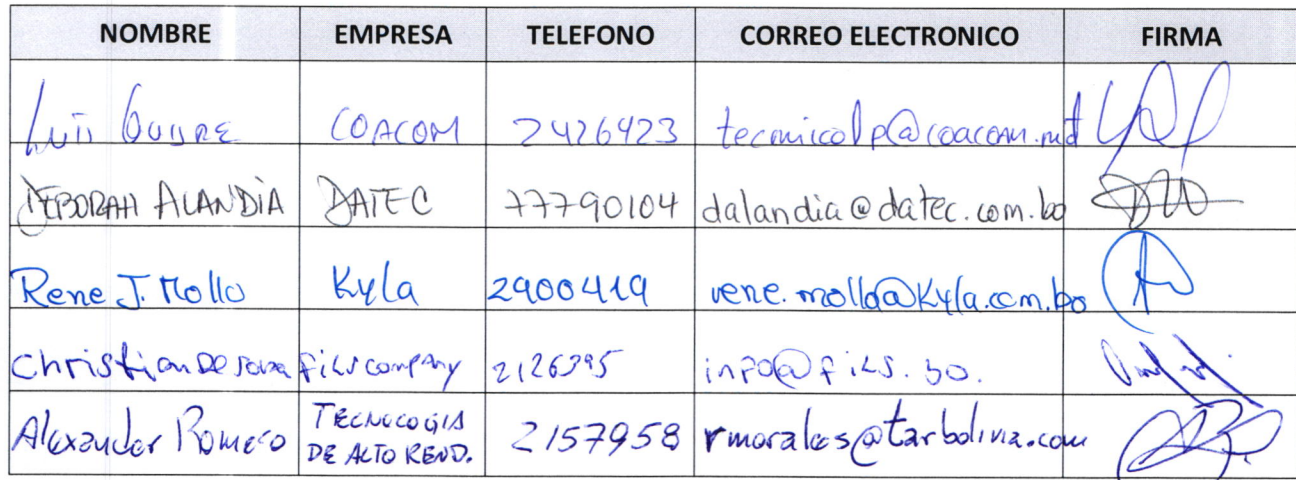 NOMBRE EMPRESA TELEFONO CORREO ELECTRONICO FIRMA
Luis COACOM 2426423 tecnicolp@coacom.net
DEBORAH ALANDIA DATEC 77790104 dalandia@datec.com.bo
Rene J. Mollo Kyla 2900419 rene.mollo@Kyla.com.bo
Christian De Sousa FILS company info@fils.bo.
Alexander Romero TECNOLOGIA DE ALTO REND. 2157958 rmorales@tarbolivia.com